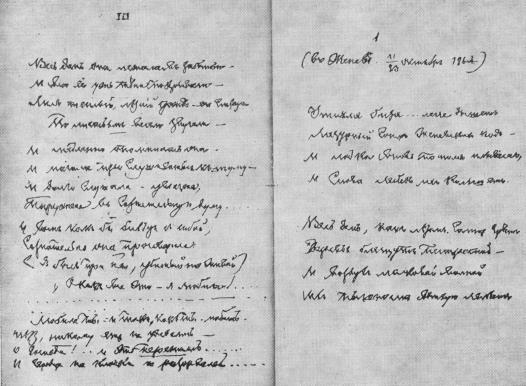 III
Весь день она лежала в забытьи —
И всю ее уж тени покрывали —
Лил теплый, летний дождь — его струи
По листьям весело звучали —
И медленно опомнилась она —
И начала прислушиваться к шуму —
И долго слушала — увлечена,
Погружена в сознательную думу....
И вот, как бы беседуя с собой,
Сознательно она проговорила:
(Я был при ней, убитый но живой)
"О как все это я любила!"
Любила ты, и так, как ты, любить
Нет, никому еще не удавалось —
О Господи!.. и это пережить....
И сердце на клочки не разорвалось....
1
( Женева 11/23 октября 1864)
Утихла биза... легче дышит
Лазурный сонм женевских вод —
И лодка вновь по ним плывет,
И снова лебедь их колышет.
Весь день, как летом, солнце греет
Деревья блещут пестротой —
И воздух ласковой волной
Их ветхую лелеет